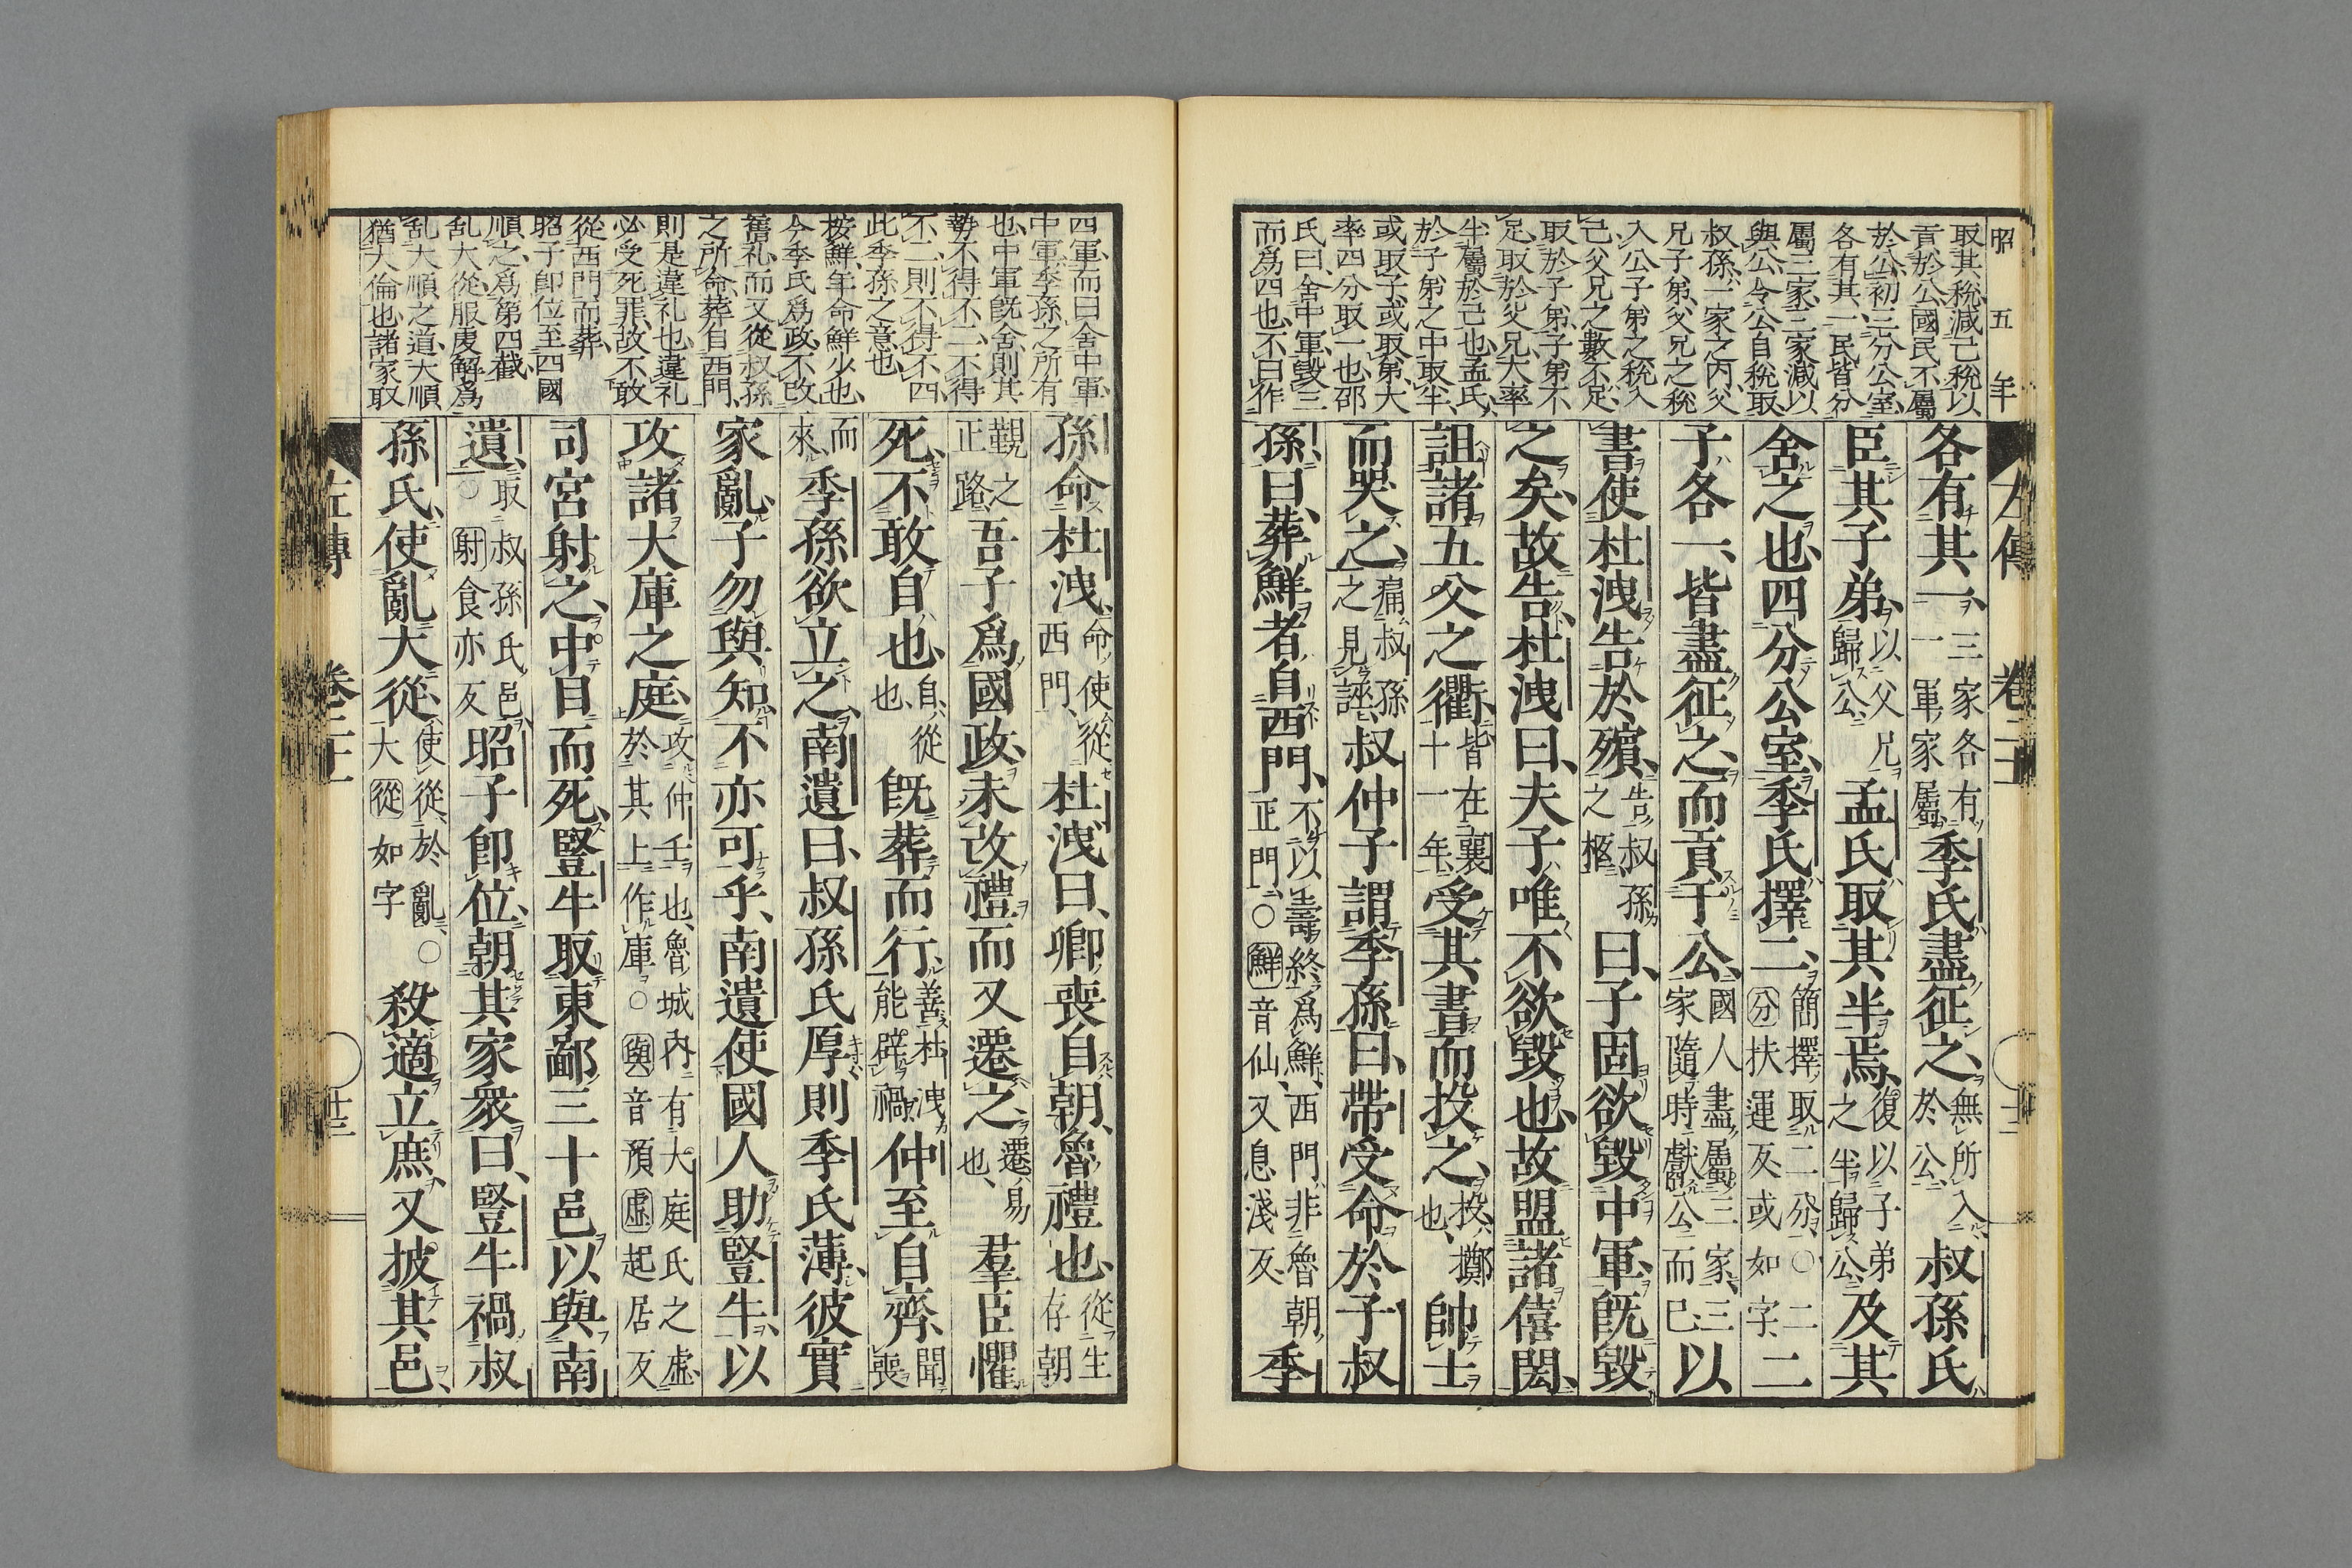 昭五年
取其稅減已稅以
貢於公國民不屬
於公初三分公室
各有其一民皆分
屬三家三家減以
與公令公自稅取
叔孫一家之內父
兄子弟父兄之稅
入公子弟之稅入
己父兄之數不足
取於子弟子弟不
足取於父兄大率
半屬於己也孟氏
於子弟之中取半
或取子或取弟大
率四分取一也邵
氏曰舍中軍毀三
而爲四也不曰作
左傳 卷二十一
各有其一、三家各有一軍家屬季氏盡征之、無所入於公叔孫氏
臣其子弟、以父兄歸公孟氏取其半焉、復以子弟之半歸公及其
舍之也、四分公室、季氏擇二、簡擇取二分○分扶運反或如字二二
子各一、皆盡征之、而貢于公、國人盡屬三家三家隨時獻公而已以
書使杜洩告於殯、告叔孫之柩曰、子固欲毀中軍、旣毀
之矣、故告、杜洩曰、夫子唯不欲毀也、故盟諸僖閎、
詛諸五父之衢、皆在襄十一年受其書而投之、投擲也帥士
而哭之、痛叔孫之見誣叔仲子謂季孫曰、帶受命於子叔
孫曰、葬鮮者自西門、不以壽終爲鮮西門非魯朝正門○鮮音仙又息淺反季
四軍而曰舍中軍
中軍季孫之所有
也中軍旣舍則其
勢不得不二不得
不二則不得不四
此季孫之意也
按鮮年命鮮少也
今季氏爲政不改
舊礼而又從叔孫
之所命葬自西門
則是違礼也違礼
必受死罪故不敢
從西門而葬
昭子卽位至四國
順之爲第四截
乱大從服虔解爲
乱大順之道大順
猶大倫也諸家取
孫命杜洩、命使從西門杜洩曰、卿喪自朝、魯禮也、從生存朝
覲之正路吾子爲國政、未改禮而又遷之、遷易也羣臣懼
死、不敢自也、自從也旣葬而行善杜洩能辟禍仲至自齊、聞喪
而來季孫欲立之、南遺曰、叔孫氏厚則季氏薄、彼實
家亂、子勿與知、不亦可乎、南遺使國人助豎牛、以
攻諸大庫之庭、攻仲壬也魯城內有大庭氏之虛於其上作庫○與音預虛起居反
司宮射之、中目而死、豎牛取東鄙三十邑以與南
遺、取叔孫氏邑○射食亦反昭子卽位、朝其家衆曰、豎牛禍叔
孫氏、使亂大從、使從於亂○大從如字殺適立庶、又披其邑
左傳 卷二十一 廿三